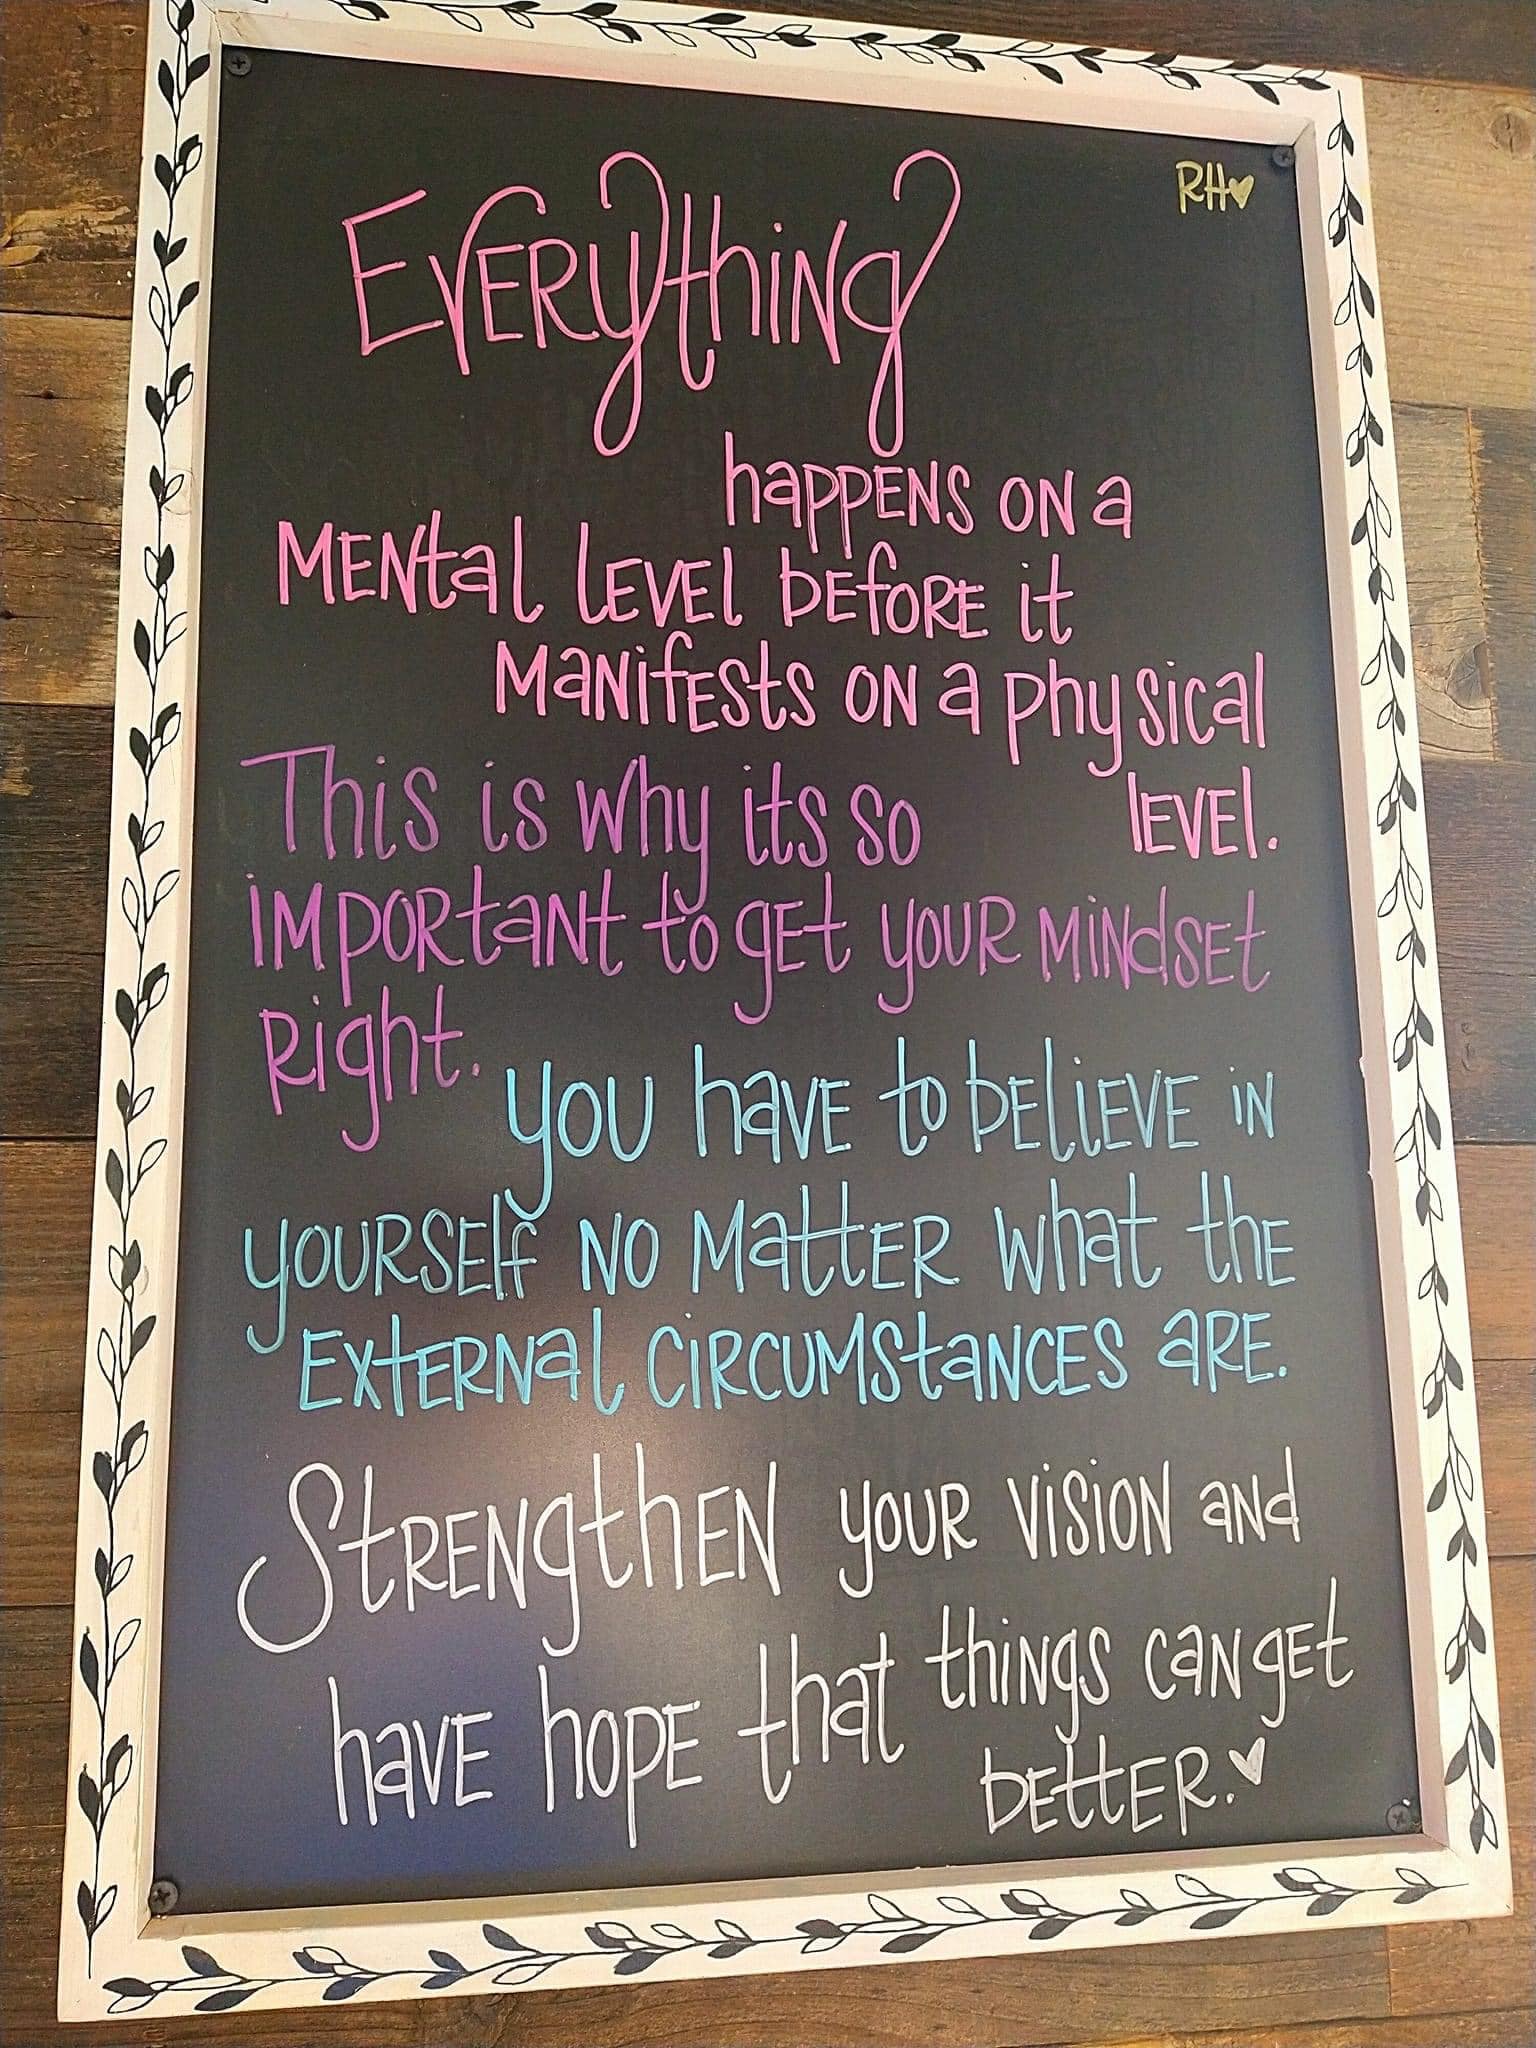 RH♥
Everything
happens on a
mental level before it
manifests on a physical
level.
This is why its so
important to get your mindset
right.
you have to believe in
yourself no matter what the
external circumstances are.
Strengthen your vision and
have hope that things can get
better.♥